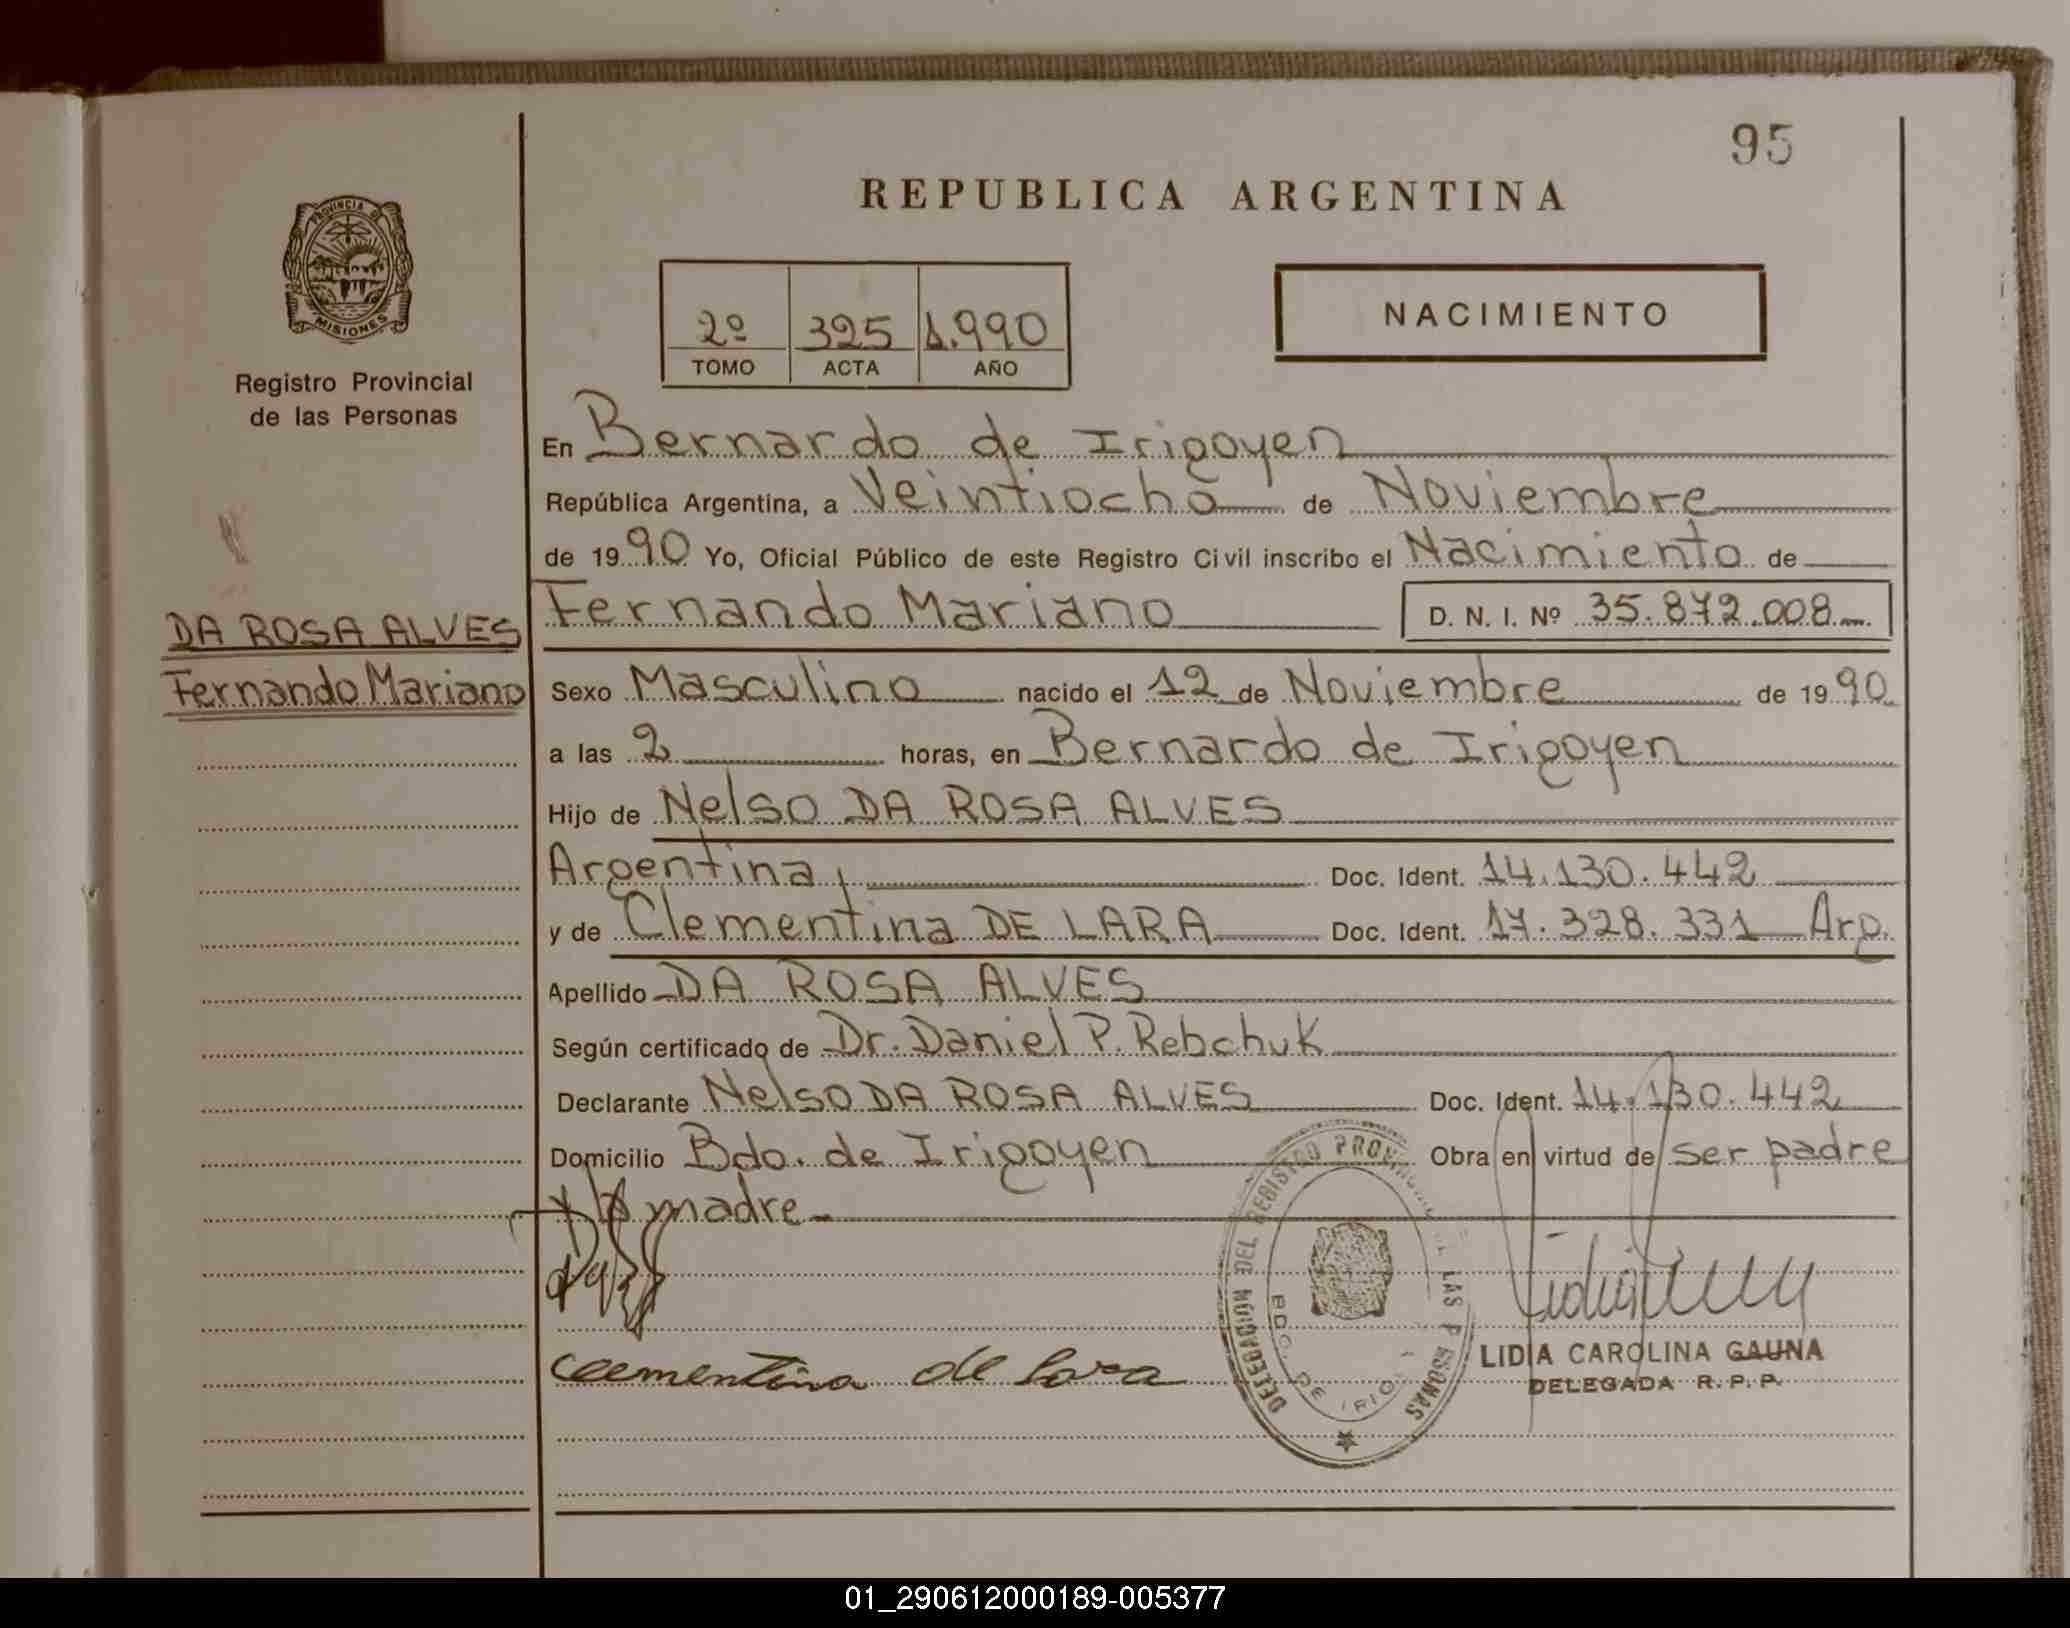 95
REPUBLICA ARGENTINA
PROVINCIA DE
MISIONES
Registro Provincial
de las Personas
2º 325 1.990
TOMO ACTA AÑO
NACIMIENTO
En Bernardo de Irigoyen
República Argentina, a Veintiocho de Noviembre
de 1990 Yo, Oficial Público de este Registro Civil inscribo el Nacimiento de
DA ROSA ALVES
Fernando Mariano
Fernando Mariano D. N. I. Nº 35.872.008
Sexo Masculino nacido el 12 de Noviembre de 1990
a las 2 horas, en Bernardo de Irigoyen
Hijo de Nelso DA ROSA ALVES
Argentina, Doc. Ident. 14.130.442
y de Clementina DE LARA Doc. Ident. 17.328.331 Arg.
Apellido DA ROSA ALVES
Según certificado de Dr. Daniel P. Rebchuk
Declarante Nelso DA ROSA ALVES Doc. Ident. 14.130.442
Domicilio Bdo. de Irigoyen Obra en virtud de ser padre
y la madre
DELEGACION DEL REGISTRO LAS
BDO. DE
Clementina de Lara
LIDIA CAROLINA GAUNA
DELEGADA R.P.P.
01_290612000189-005377